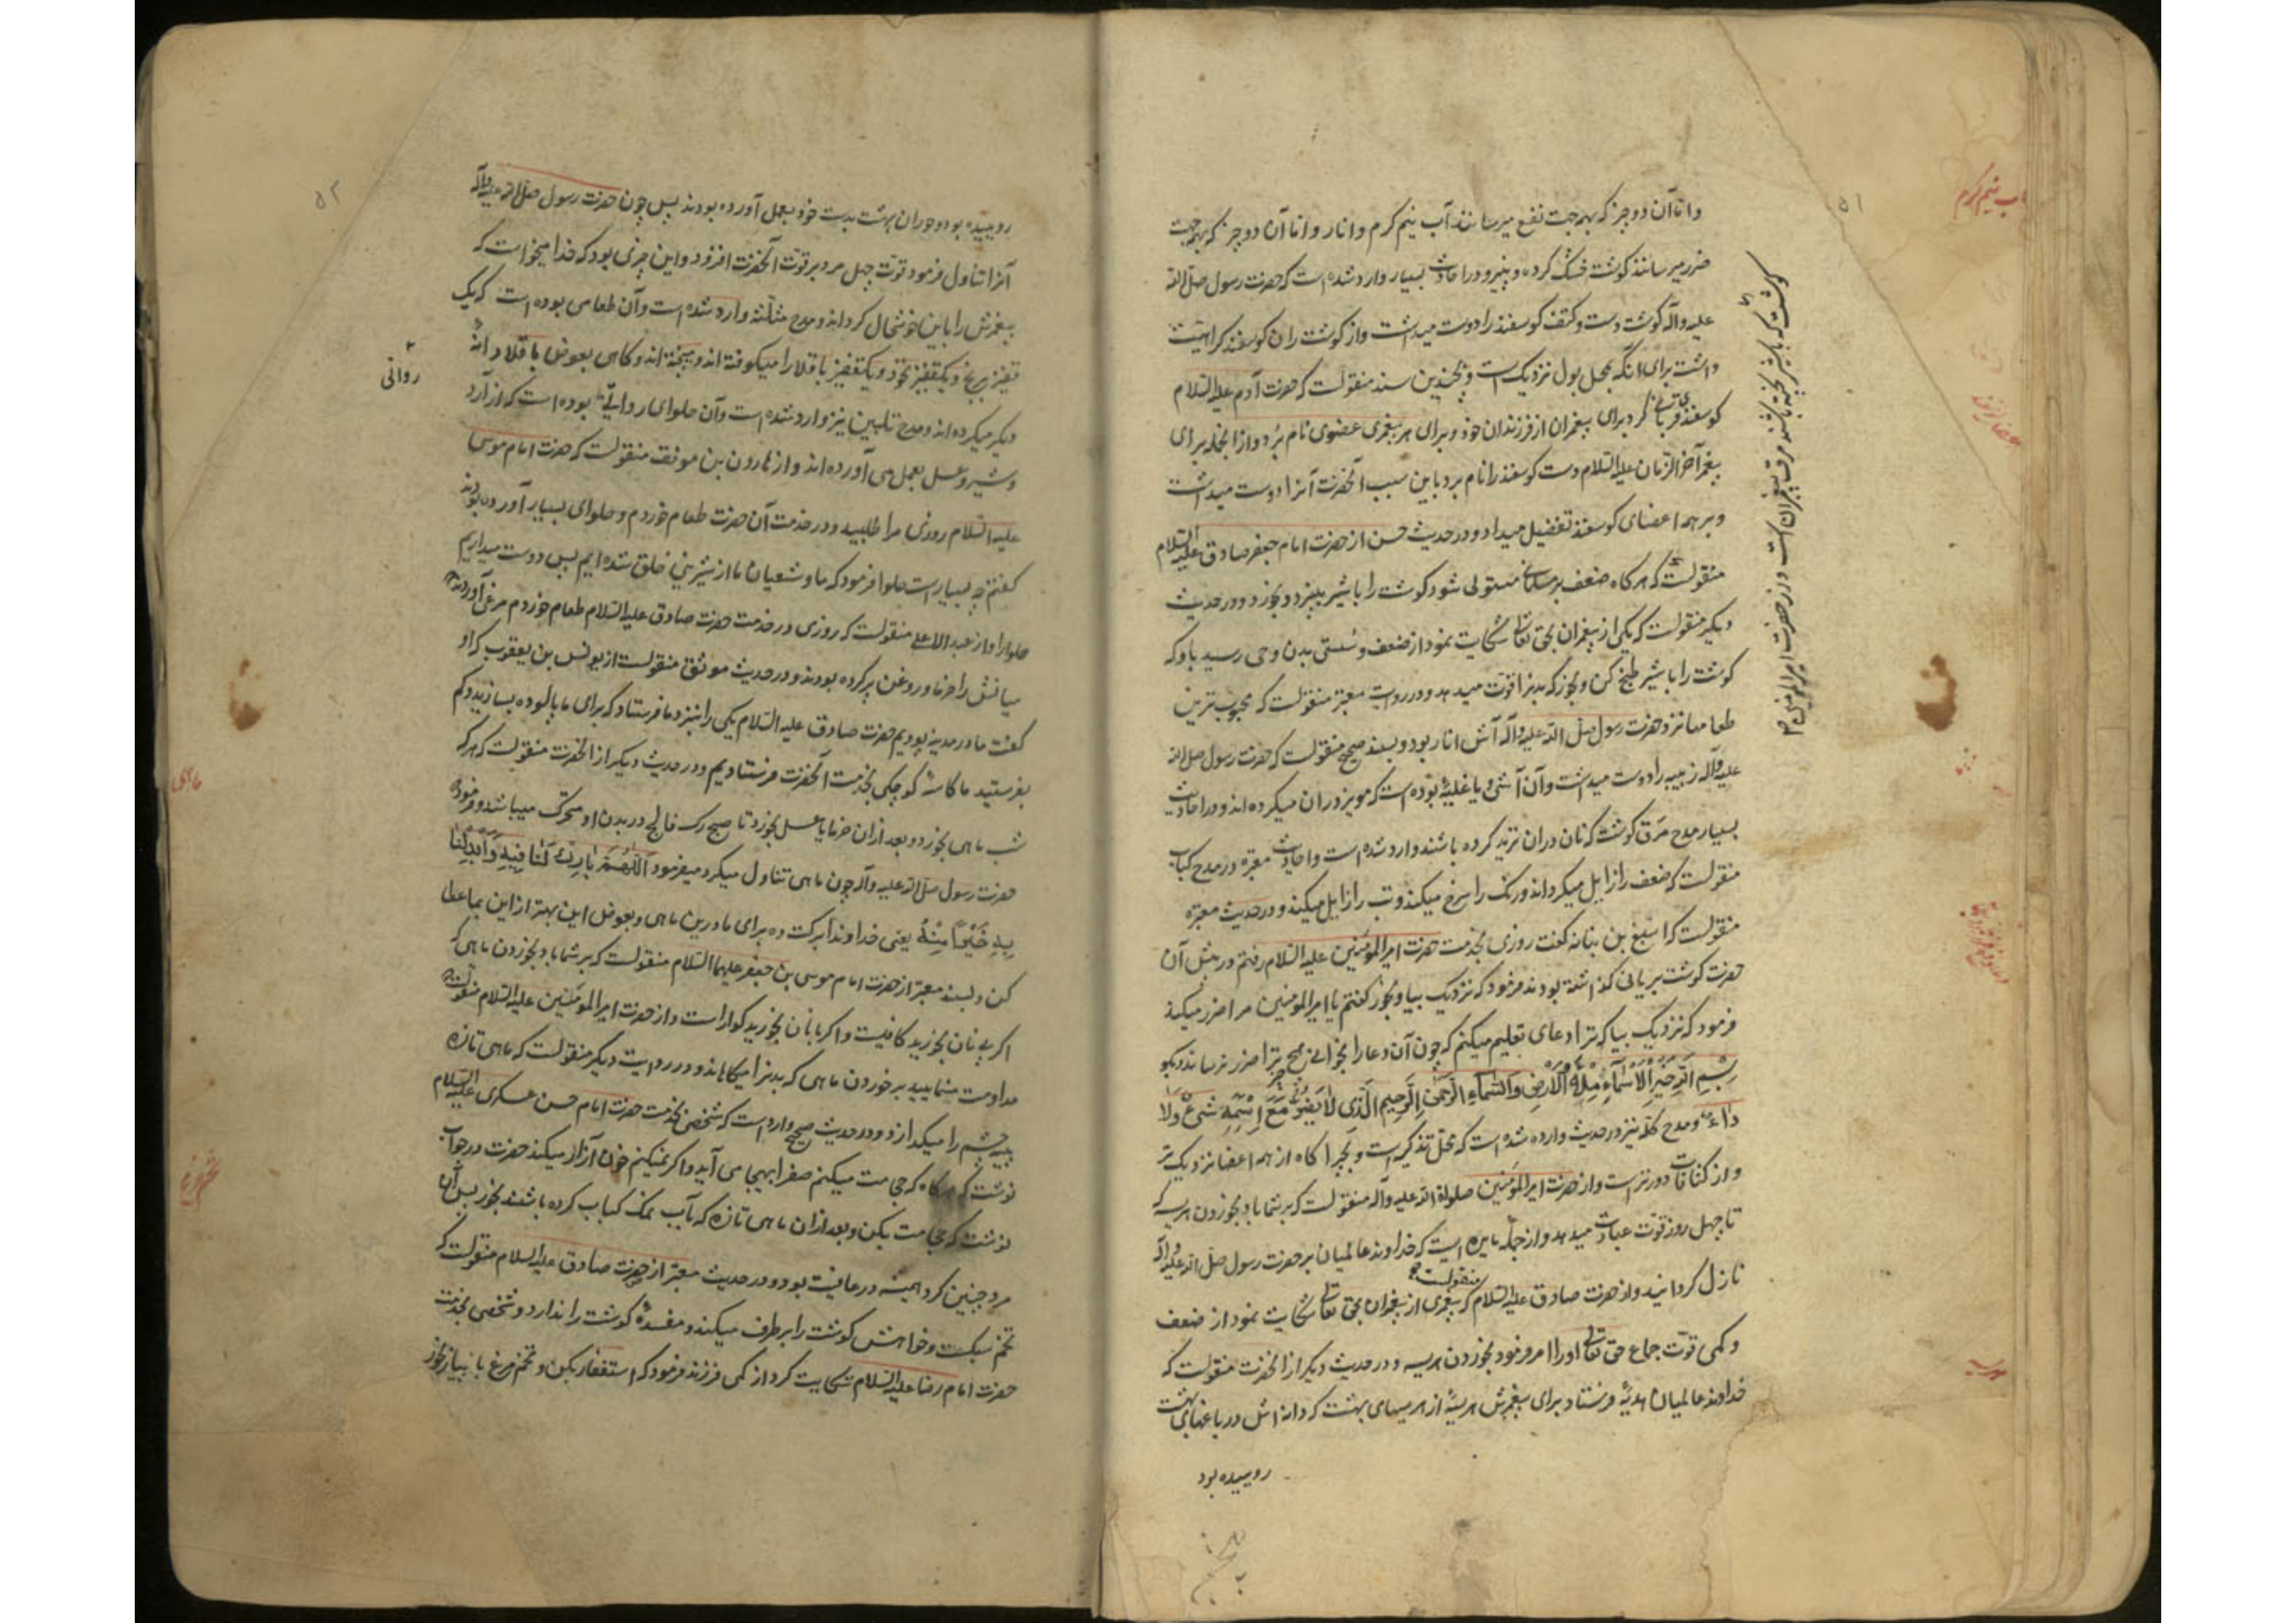 ۵۱
و اما آن دو چیز که بهمه جهت نفع میرسانند آب نیم گرم و انار و اما آن دو چیز که بهمه جهت
ضرر میرسانند گوشت خشک کرده و پنیر و در احادیث بسیار وارد شده است که حضرت رسول صلی الله
علیه و آله گوشت دست و کتف گوسفند را دوست میداشت و از گوشت ران گوسفند کراهیت
داشت برای آنکه بمحل بول نزدیک است و بچندین سند منقولست که حضرت آدم علیه السلام
گوسفند قربانی کرد برای پیغمبران از فرزندان خود و برای هر پیغمبری عضوی نام برد و از انجمله برای
پیغمبر آخر الزمان علیه السلام دست گوسفند را نام برد باین سبب آنحضرت آنرا دوست میداشت
و بر همه اعضای گوسفند تفضیل میداد و در حدیث حسن از حضرت امام جعفر صادق علیه السلام
منقولست که هر گاه ضعف بر مسلمانی مستولی شود گوشت را با شیر بپزد و بخورد و در حدیث
دیگر منقولست که یکی از پیغمبران بحق تعالی شکایت نمود از ضعف و سستی بدن وحی رسید باو که
گوشت را با شیر طبخ کن و بخور که بدنرا قوت میدهد و در روایت معتبر منقولست که محبوب ترین
طعامها نزد حضرت رسول صلی الله علیه و آله آش انار بود و بسند صحیح منقولست که حضرت رسول صلی الله
علیه و آله زبیبه را دوست میداشت و آن آشی و یا غلیهٔ بوده است که مویز دران میکرده اند و در احادیث
بسیار مدح مرق گوشت که نان دران ترید کرده باشند وارد شده است و احادیث معتبره در مدح کباب
منقولست که ضعف را زایل میگرداند و رنگ را سرخ میکند و تب را زایل میکند و در حدیث معتبره
منقولست که اصبغ بن نباته گفت روزی بخدمت حضرت امیر المؤمنین علیه السلام رفتم در پیش آن
حضرت گوشت بریانی گذاشته بودند فرمود که نزدیک بیا و بخور گفتم یا امیر المومنین مرا ضرر میکند
فرمود که نزدیک بیا که ترا دعای تعلیم میکنم که چون آن دعا را بخوانی هیچ چیز ترا ضرر نرساند و بگو
بِسْمِ اللهِ خَیْرِ الْاَسْمَاءِ مِلْءَ الْاَرْضِ وَالسَّمَاءِ الرَّحْمٰنِ الرَّحِیمِ الَّذِی لَا یَضُرُّ مَعَ اسْمِهِ شَیْءٌ وَلَا
دَاءٌ و مدح کلّه نیز در حدیث وارده شده است که محل تذکیه است و بچراگاه از همه اعضا نزدیک تر
و از کثافات دورتر است و از حضرت امیر المؤمنین صلوة الله علیه و آله منقولست که بر شما باد بخوردن هریسه که
تا چهل روز قوت عبادت میدهد و از جمله مایدهٔ ایست که خداوند عالمیان بر حضرت رسول صلی الله علیه و آله
نازل گردانید و از حضرت صادق علیه السلام منقولست که پیغمبری از پیغمبران بحق تعالی شکایت نمود از ضعف
و کمی قوت جماع حق تعالی او را امر فرمود بخوردن هریسه و در حدیث دیگر از آنحضرت منقولست که
خداوند عالمیان هدیهٔ فرستاد برای پیغمبرش هریسهٔ از هریسهای بهشت که دانه اش در باغهای بهشت
روییده بود
گوشت که با شیر پخته باشند مرق پیغمبران است و از حضرت امیر المومنین
آب نیم گرم
هریسه
۵۲
روییده بود و حوران بهشت بدست خود بعمل آورده بودند پس چون حضرت رسول صلی الله علیه و آله
آنرا تناول فرمود قوت چهل مرد بر قوت آنحضرت افزود و این چیزی بود که خدا میخواست که
پیغمبرش را باین خوشحال گرداند و مدح مثلثه وارد شده است و آن طعامی بوده است که یک
قفیز برنج و یکقفیز نخود و یکقفیز باقلا را میکوفته اند و میپخته اند و گاهی بعوض باقلا دانهٔ
دیگر میکرده اند و مدح تلبین نیز وارد شده است و آن حلوای روانی بوده است که از آرد
و شیر و عسل بعمل می آورده اند و از هارون بن موفق منقولست که حضرت امام موسی
علیه السلام روزی مرا طلبید و در خدمت آن حضرت طعام خوردم و حلوای بسیار آورده بودند
گفتم چه بسیار است حلوا فرمود که ما و شعیان ما از شیرینی خلق شده ایم پس دوست میداریم
حلوا را و از عبد الاعلی منقولست که روزی در خدمت حضرت صادق علیه السلام طعام خوردم مرغی آوردند که
میانش را خرما و روغن پر کرده بودند و در حدیث موثق منقولست از یونس بن یعقوب که او
گفت ما در مدینه بودیم حضرت صادق علیه السلام یکی را نزد ما فرستاد که برای ما پالوده بسازید و کم
بفرستید ما کاسهٔ کوچکی بخدمت آنحضرت فرستادیم و در حدیث دیگر از آنحضرت منقولست که هر که
شب ماهی بخورد و بعد ازان خرما یا عسل بخورد تا صبح رک فالج در بدن او متحرک میباشد و فرمود که
حضرت رسول صلی الله علیه و آله چون ماهی تناول میکرد میفرمود اَللّٰهُمَّ بَارِكْ لَنَا فِیهِ وَاَبْدِلْنَا
بِهِ خَیْرًا مِنْهُ یعنی خداوندا برکت ده برای ما درین ماهی و بعوض این بهتر از این بما عطا
کن و بسند معتبر از حضرت امام موسی بن جعفر علیهما السلام منقولست که بر شما باد بخوردن ماهی که
اگر بی نان بخورید کافیست و اگر با نان بخورید گواراست و از حضرت امیر المؤمنین علیه السلام منقولست که
مداومت منمایید بر خوردن ماهی که بدنرا میکاهاند و در روایت دیگر منقولست که ماهی تازه
پیه چشم را میگدازد و در حدیث صحیح وارد است که شخصی بخدمت حضرت امام حسن عسکری علیه السلام
نوشت که هرگاه که حجامت میکنم صفرا بهیجان می آید و اگر نمیکنم خون آزار میکند حضرت در جواب
نوشت که حجامت بکن و بعد ازان ماهی تازه که بآب نمک کباب کرده باشند بخور پس آن
مرد چنین کرد همیشه در عافیت بود و در حدیث معتبر از حضرت صادق علیه السلام منقولست که
تخم سبکست و خواهش گوشت را بر طرف میکند و مفسدهٔ گوشت را ندارد و شخصی بخدمت
حضرت امام رضا علیه السلام شکایت کرد از کمی فرزند فرمود که استغفار بکن و تخم مرغ با پیاز بخور
روانی
ماهی
تخم مرغ